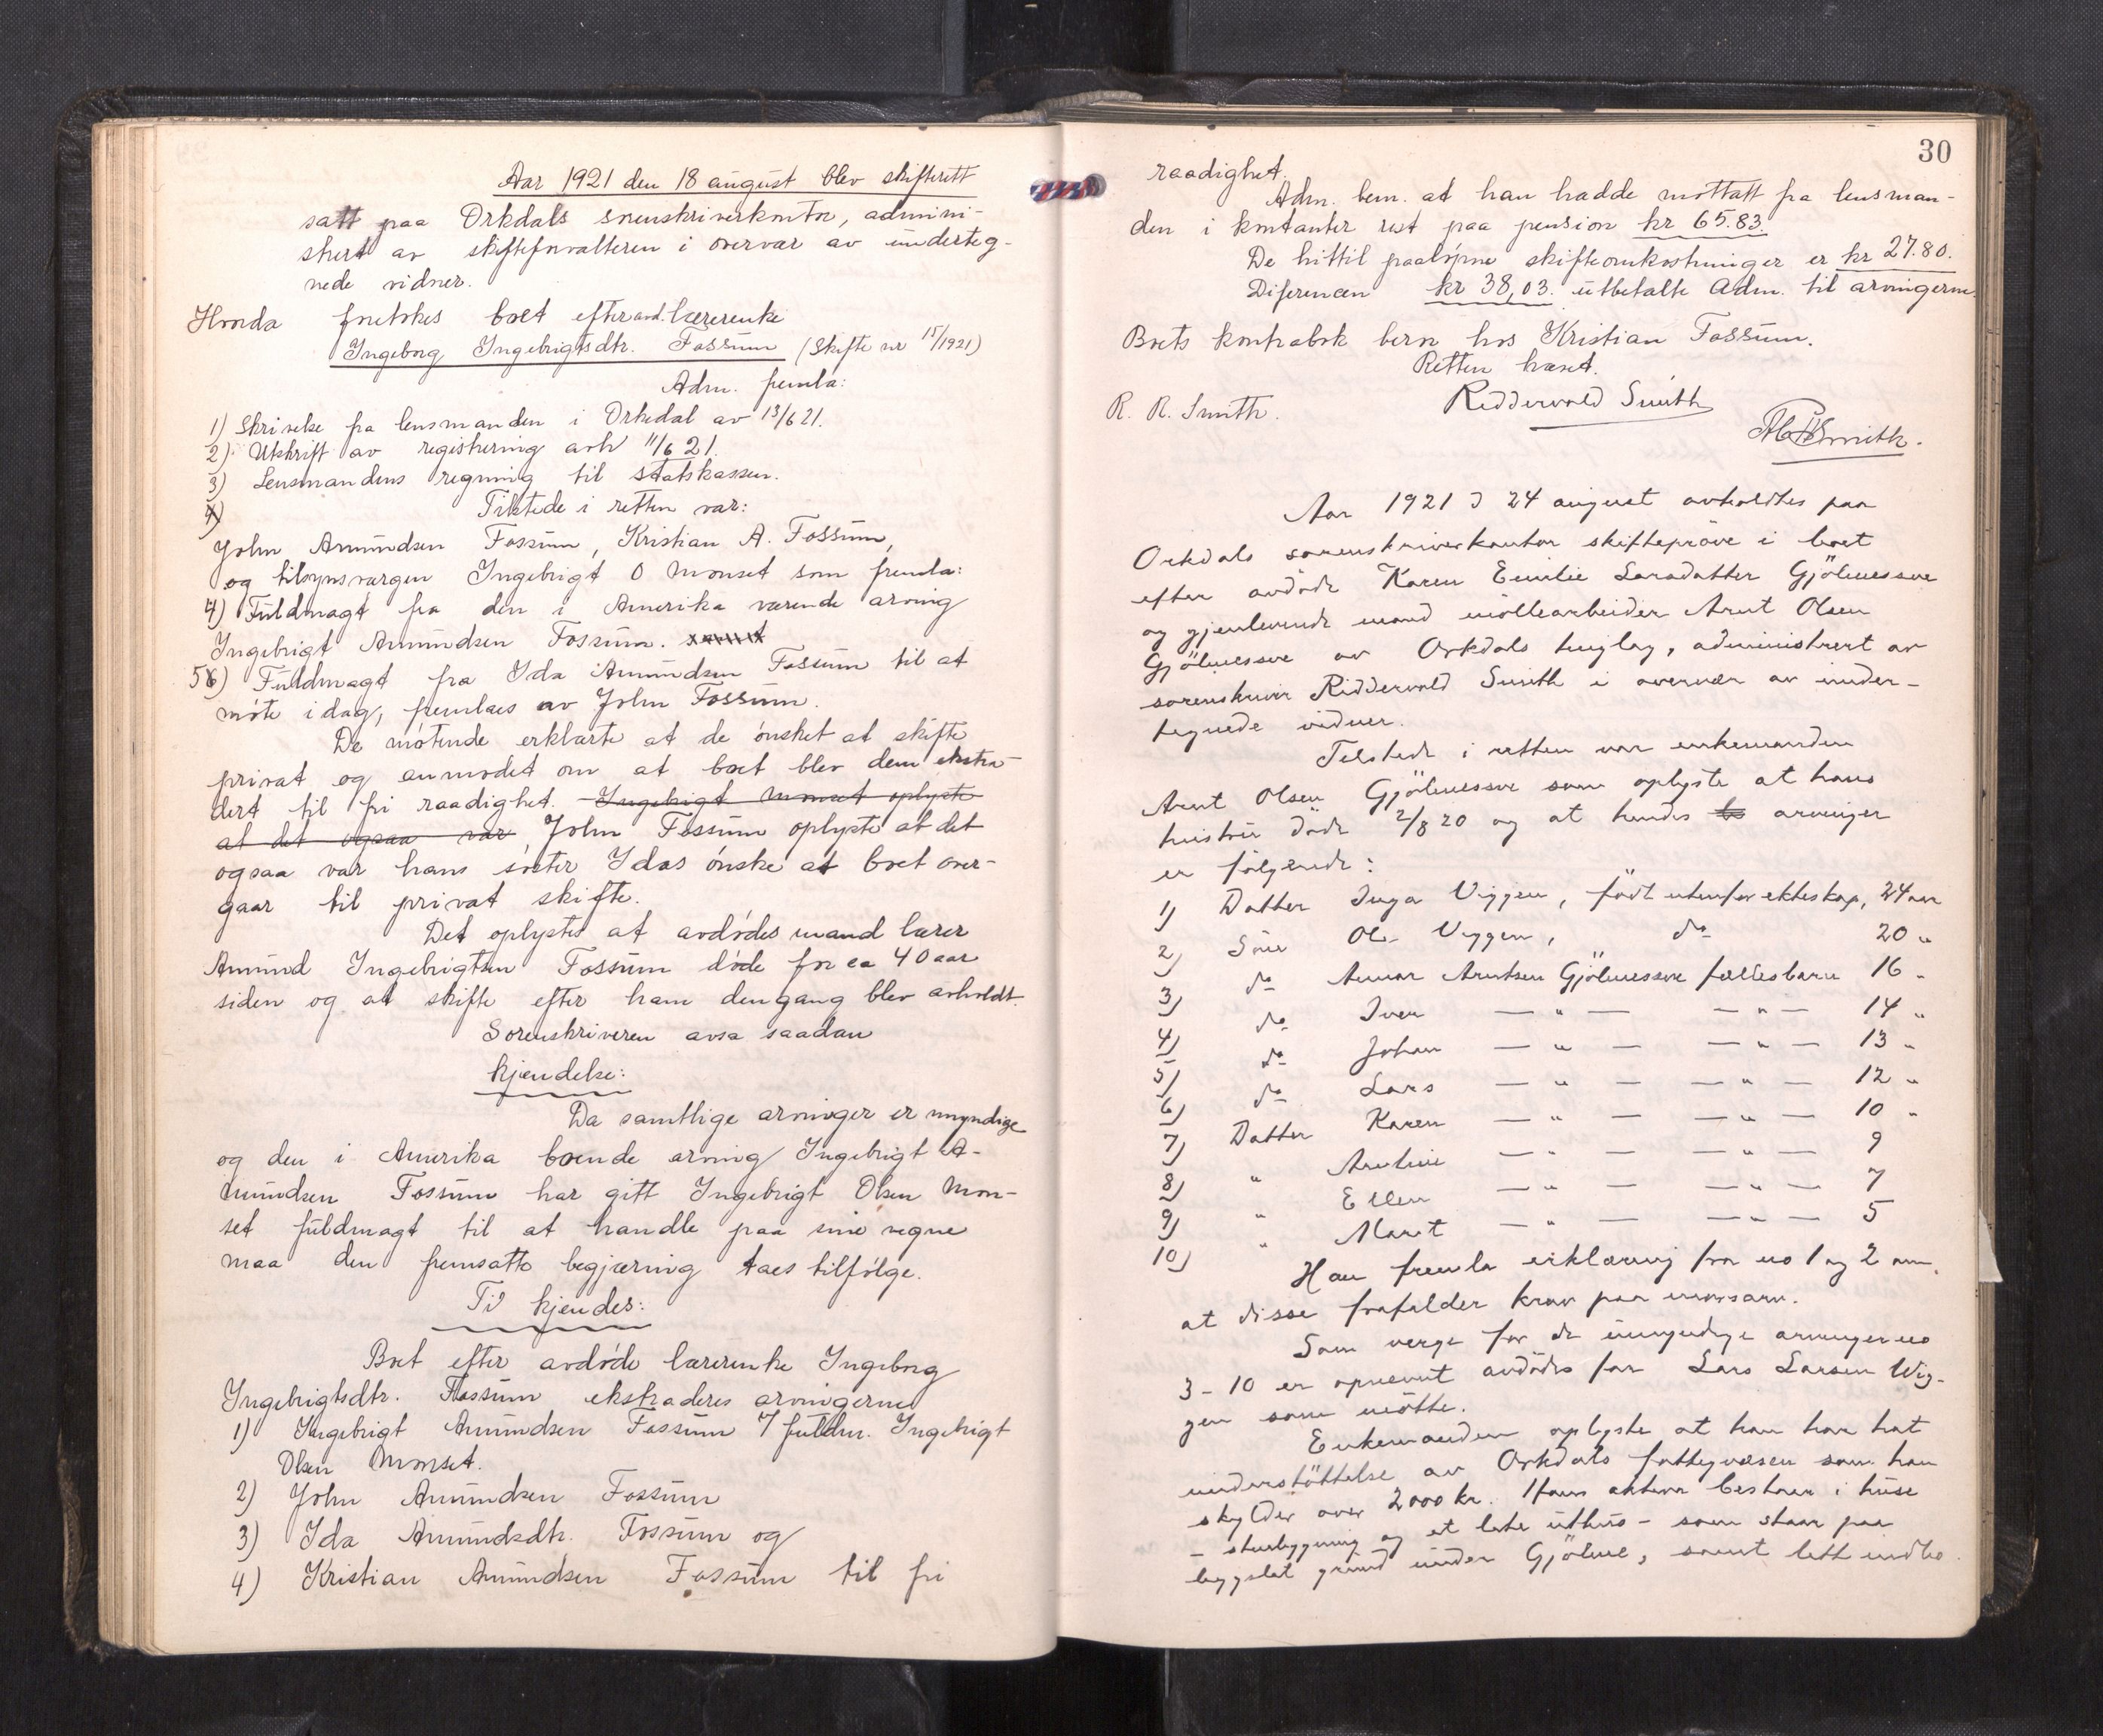 Aar 1921 den 18 august blev skifterett
satt paa Orkdals sorenskriverkontor, admini-
strert av skifteforvalteren i overvær av underteg-
nede vidner.
Hvorda foretokes boet efter avd. lærerenke
Ingeborg Ingebrigtsdtr. Fossum (Skifte nr 15/1921)
Adm. fremla:
1) Skrivelse fra lensmanden i Orkedal av 13/6 21.
2) Utskrift av registrering avh 11/6 21.
3) Lensmandens regning til statskassen.
4) Tilstede i retten var:
John Amundsen Fossum, Kristian A. Fossum,
og tilsynsvergen Ingebrigt O Monset som fremla:
4) Fuldmagt fra den i Amerika værende arving
Ingebrigt Amundsen Fossum.
5) Fuldmagt fra Ida Amundsen Fossum til at
møte idag, fremlaes av John Fossum.
De møtende erklærte at de ønsket at skifte
privat og anmodet om at boet blev dem ekstra-
dert til fri raadighet. Ingebrigt Monset oplyste
at det ogsaa var John Fossum oplyste at det
ogsaa var hans søster Idas ønske at boet over-
gaar til privat skifte.
Det oplystes at avdødes mand lærer
Amund Ingebrigtsen Fossum døde for ca 40 aar
siden og at skifte efter ham dengang blev avholdt.
Sorenskriveren avsa saadan
kjendelse:
Da samtlige arvinger er myndige
og den i Amerika boende arving Ingebrigt A-
mundsen Fossum har gitt Ingebrigt Olsen Mon-
set fuldmagt til at handle paa sine vegne
maa den fremsatte begjæring taes tilfølge.
Ti kjendes:
Boet efter avdøde lærerenke Ingeborg
Ingebrigtsdtr. Fossum ekstraderes arvingerne
1) Ingebrigt Amundsen Fossum v/ fuldm. Ingebrigt
Olsen Monset.
2) John Amundsen Fossum
3) Ida Amundsdtr. Fossum og
4) Kristian Amundsen Fossum til fri
30
raadighet.
Adm. bem. at han hadde mottatt fra lensman-
den i kontanter rest paa pension kr 65.83.
De hittil paaløpne skifteomkostninger er kr 27.80.
Diferencen kr 38,03. utbetalte Adm. til arvingerne.
Boets kontrabok beror hos Kristian Fossum.
Retten hævet.
R. R. Smith. Riddervold Smith
Smith.
Aar 1921 d 24 august avholdtes paa
Orkdals sorenskriverkontor skifteprøve i boet
efter avdøde Karen Emilie Larsdatter Gjölmesøre
og gjenlevende mand möllearbeider Arnt Olsen
Gjölmesøre av Orkdals tinglag, administrert av
sorenskriver Riddervold Smith i overvær av under-
tegnede vidner.
Tilstede i retten var enkemanden
Arnt Olsen Gjölmesøre som oplyste at hans
hustru døde 2/8 20 og at hendes arvinger
er følgende:
1) Datter Inga Viggen, født utenfor ekteskap, 24 aar
2) Sön Ole Viggen, do 20 "
3) do Amar Arntsen Gjölmesøre fællesbarn 16 "
4) do Iver — " — — " — 14 "
5) do Johan — " — — " — 13 "
6) do Lars — " — — " — 12 "
7) Datter Karen — " — — " — 10 "
8) " Arntine — " — — " — 9
9) " Ellen — " — — " — 7
10) " Marit — " — — " — 5
Han fremla erklæring fra no 1 og 2 om,
at disse frafalder krav paa morsarv.
Som verge for de umyndige arvinger no
3-10 er opnevnt avdødes far Lars Larsen Vig-
gen som møtte.
Enkemanden oplyste at han har hat
understøttelse av Orkdals fattigvæsen som han
skylder over 2000 kr. Hans aktiva bestaar i huse
- stuebygning og et lite uthus - som staar paa
bygslet grund under Gjölme, samt litt indbo